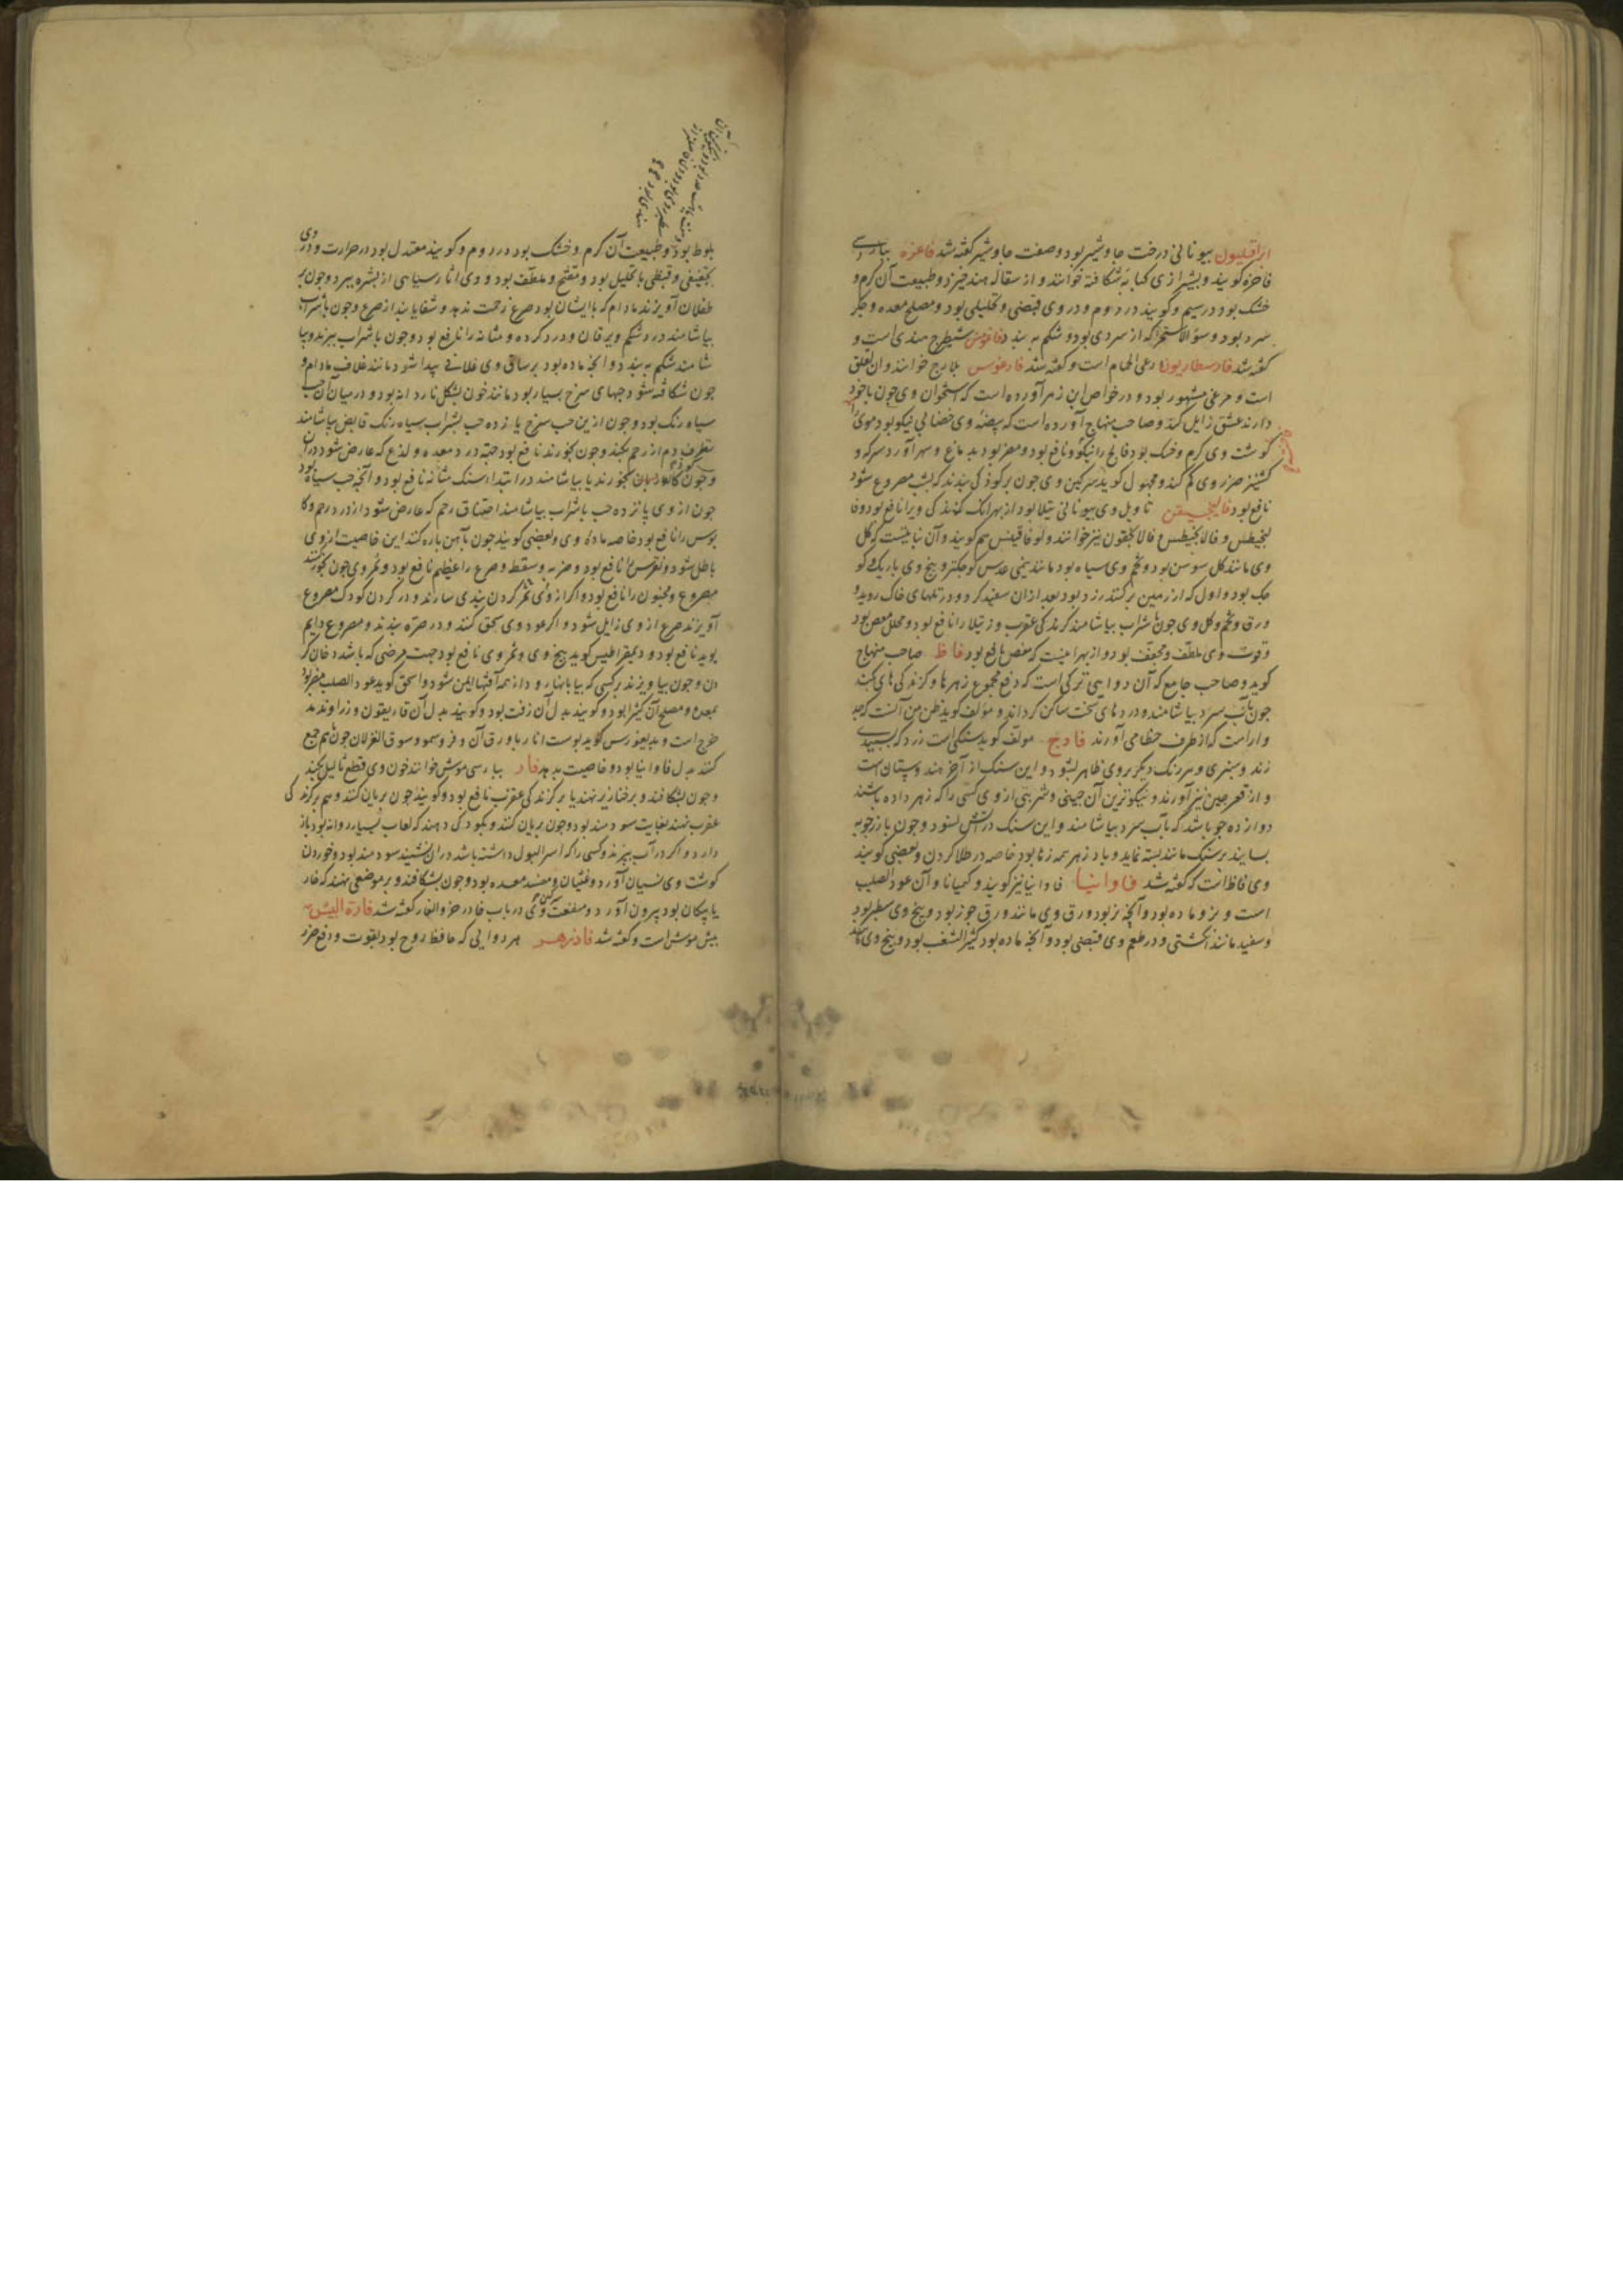 ایراقلیون بیونانی درخت جاوشیر بود و صفت جاوشیر گفته شد فاغره بپارسی
فاخره کویند و بشیرازی کبابه شکافته خوانند و از سقاله هند خیزد و طبیعت آن کرم و
خشک بود در سیم و کویند در دوم و در وی قبضی و تحلیلی بود و مصلح معده و جکر
سرد بود و سوء الاستمرا که از سردی بود و شکم به بندد شیطرج هندی است و
گفته شد فارسطاریون رعی الحمام است و گفته شد بلارج خوانند و ان لقلق
است و مرغی مشهور بود و در خواص ابن زهر آورده است که استخوان وی چون باخود
دارند عشق زایل کند و صاحب منهاج آورده است که بیضه وی خضابی نیکو بود موی را
کوشت وی کرم و خشک بود فالج را نیکو و نافع بود و مضر بود بدماغ و سهر آورد سرکه و
کشنیز ضرر وی کم کند و مجهول کوید سرکین وی چون بر کودکی بندند که بشب مصروع شود
نافع بود تاویل وی بیونانی رتیلا بود از بهر انک کزندکی ویرا نافع بود و فا
لنجیطس و فالانجیطس فالانجقون نیز خوانند و لوقاقینس هم کویند و آن نباتیست که کل
وی مانند کل سوسن بود و تخم وی سیاه بود مانند نیمی عدس کوچکتر و بیخ وی باریک و کو
چک بود و اول که از زمین برکنند زرد بود بعد از ان سفید کردد و در تلهای خاک روید و
ورق و تخم و کل وی چون باشراب بیاشامند کزندکی عقرب و رتیلا را نافع بود و محلل مغص بود
و قوت وی ملطف و مجفف بود و از بهر اینست که مغص را نافع بود فاظ صاحب منهاج
کوید و صاحب جامع که آن دوایی ترکی است که دفع مجموع زهرها و کزندکیهای بکند
چون بآب سرد بیاشامند و دردهای سخت ساکن کرداند و مولف کوید ظن من آنست که جد
وارست که از طرف خطا می آورند فادج مولف کوید سنکی است زرد که بسپیدی
زند و سبزی و سردنک دیکر بروی ظاهر بشود و این سنک از آخر هند و سیستان هست
و از قعر چین نیز آورند و نیکوترین آن چینی و شربتی از وی کسی را که زهر داده باشند
دوازده جو باشد که بآب سرد بیاشامند و این سنک در آتش نسوزد و چون با زرچوبه
بسایند بر سنک مانند بسته نماید و پادزهر همه زهرها بود خاصه در طلا کردن و بعضی کویند
وی فاظ است که گفته شد فاوانیا فاوانیا نیز کویند و کهیانا و آن عود الصلیب
است و نر و ماده بود و آنچه نر بود ورق وی مانند ورق جوز بود و بیخ وی سطبر بود
و سفید مانند انکشتی و در طعم وی قبضی بود و آنچه ماده بود کثیر الشعب بود و بیخ وی مانند
بلوط بود و طبیعت آن کرم و خشک بود در دوم و کویند معتدل بود در حرارت و در وی
تجفیفی و قبضی با تحلیل بود و مفتح و ملطف بود و وی اثار سیاهی از بشره ببرد و چون بر
طفلان آویزند مادام که با ایشان بود صرع زحمت ندهد و شفا یابند از صرع و چون باشراب
بیاشامند درد شکم و یرقان و درد کرده و مثانه را نافع بود و چون باشراب بپزند و بیا
شامند شکم به بندد و آنچه ماده بود بر ساق وی غلافی پیدا شود مانند غلاف بادام و
چون شکافته شود حبهای سرخ بسیار بود مانند خون بشکل ناردانه بود و در میان آن حب
سیاه رنک بود و چون از ین حب سرخ یازده حب بشراب سیاه رنک قابض بیاشامند
دم از رحم بکند و چون بخورند نافع بود جهة درد معده و لذع که عارض شود در آن
و چون کودکان بخورند یا بیاشامند در ابتدا سنک مثانه نافع بود و آنچه حب سیاه بود
چون از وی پانزده حب باشراب بیاشامند اختناق رحم که عارض شود از درد رحم و کا
بوس را نافع بود خاصه ماده وی و بعضی کویند چون بآهن پاره کنند این خاصیت از وی
باطل شود و نقرس را نافع بود و ضربه و سقطه و صرع را عظیم نافع بود و ثمر وی چون بخور کنند
مصروع و مجنون را نافع بود و اکر از وی ثمر کردن بندی سازند و در کردن کودک مصروع
آویزند صرع از وی زایل شود و اکر عود وی سحق کنند و در صره بندند و مصروع دایم
بوید نافع بود و دیمقراطیس کوید بیخ وی و ثمر وی نافع بود جهت مرضی که باشد دخان کر
دن و چون بیاویزند بر کسی که بیابانها رود از همه آفتها ایمن شود و اسحق کوید عود الصلیب مضر بود
بمعده و مصلح آن کتیرا بود و کویند بدل آن زفت بود و کویند بدل آن غاریقون و زراوند مد
حرج است و کوید پوست انار با ورق آن و فرو سمور و سوق الغزلان چون هم جمع
کنند بدل فاوانیا بود و خاصیت بدهد فار بپارسی موش خوانند خون وی قطع ثالیل بکند
و چون بشکافند و بر خنازیر نهند یا بر کزندکی عقرب نافع بود و کویند چون بریان کنند و هم بر کزندکی
عقرب نهند بغایت سودمند بود و چون بریان کنند و بکودکی دهند که لعاب بسیار روانه بود باز
دارد و اکر در آب بپزند و کسی را که اسر البول داشته باشد در ان نشیند سودمند بود و خوردن
کوشت وی نسیان آورد و غثیان و مفسد معده بود و چون بشکافند و بر موضعی نهند که خار
یا پیکان بود بیرون آورد و منفعت وی در باب خا در خرو الفار گفته شد فارة البیش
بیش موش است و گفته شد فادزهر هر دوایی که حافظ روح بود بقوت و دفع ضرر